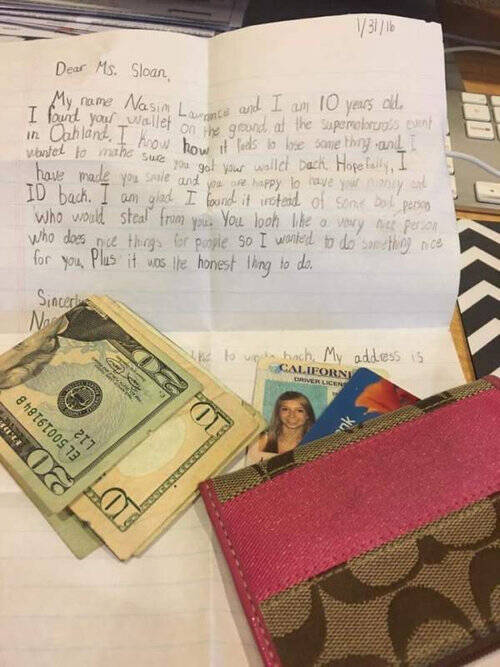 1/31/16
Dear Ms. Sloan,
My name Nasim Lawrence and I am 10 years old.
I found your wallet on the ground at the supermotorcross event
in Oakland, I know how it feels to lose something and I
wanted to make sure you got your wallet back. Hopefully, I
have made you smile and you are happy to have your money and
ID back. I am glad I found it instead of some bad person
who would steal from you. You look like a very nice person
who does nice things for people so I wanted to do something nice
for you, Plus it was the honest thing to do.
like to write back. My address is
CALIFORNI
DRIVER LICEN
20
EL50019184B
L12
20
10
10